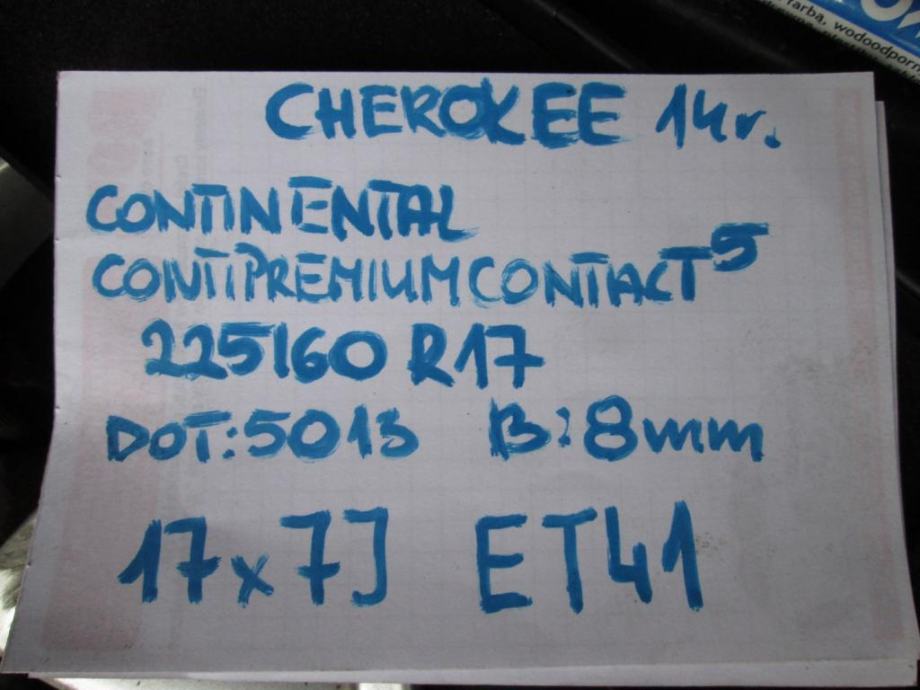 farba, wodoodporn
CHEROKEE 14r.
CONTINENTAL
CONTIPREMIUMCONTACT5
225/60 R17
DOT:5013 B:8mm
17x7J ET41